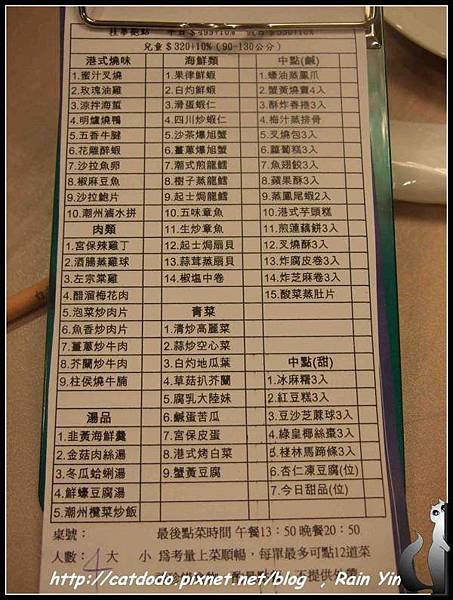 兒童＄320+10% (90-130公分)
港式燒味
1.蜜汁叉燒
2.玫瑰油雞
3.涼拌海蜇
4.明爐燒鴨
5.五香牛腱
6.花雕醉蝦
7.沙拉魚卵
8.椒麻豆魚
9.沙拉鮑片
10.潮州滷水拼
肉類
1.宮保辣雞丁
2.酒腸蒸雞球
3.左宗棠雞
4.醋溜梅花肉
5.泡菜炒肉片
6.魚香炒肉片
7.薑蔥炒牛肉
8.芥蘭炒牛肉
9.柱侯燒牛腩
湯品
1.韭黃海鮮羹
2.金菇肉絲湯
3.冬瓜蛤蜊湯
4.鮮蠔豆腐湯
5.潮州欖菜炒飯
海鮮類
1.果律鮮蝦
2.白灼鮮蝦
3.滑蛋蝦仁
4.四川炒蝦仁
5.沙茶爆旭蟹
6.薑蔥爆旭蟹
7.潮式煎龍鱈
8.樹子蒸龍鱈
9.起士焗龍鱈
10.五味章魚
11.生炒章魚
12.起士焗扇貝
13.蒜茸蒸扇貝
14.椒塩中卷
青菜
1.清炒高麗菜
2.蒜炒空心菜
3.白灼地瓜葉
4.草菇扒芥蘭
5.腐乳大陸妹
6.鹹蛋苦瓜
7.宮保皮蛋
8.港式烤白菜
9.蟹黃豆腐
中點(鹹)
1.蠔油蒸鳳爪
2.蟹黃燒賣4入
3.酥炸香捲3入
4.梅汁蒸排骨
5.叉燒包3入
6.蘿蔔糕3入
7.魚翅餃3入
8.蘋果酥3入
9.蒸鳳尾蝦2入
10.港式芋頭糕
11.煎蓮藕餅3入
12.叉燒酥3入
13.炸腐皮卷3入
14.炸芝麻卷3入
15.酸菜蒸肚片
中點(甜)
1.冰麻糬3入
2.紅豆糕3入
3.豆沙芝蔴球3入
4.綠皇椰絲棗3入
5.桂林馬蹄條3入
6.杏仁凍豆腐(位)
7.今日甜品(位)
桌號： 最後點菜時間 午餐13：50 晚餐20：50
人數：4 大 小 為考量上菜順暢，每單最多可點12道菜
http://catdodo.pixnet.net/blog , Rain Yin